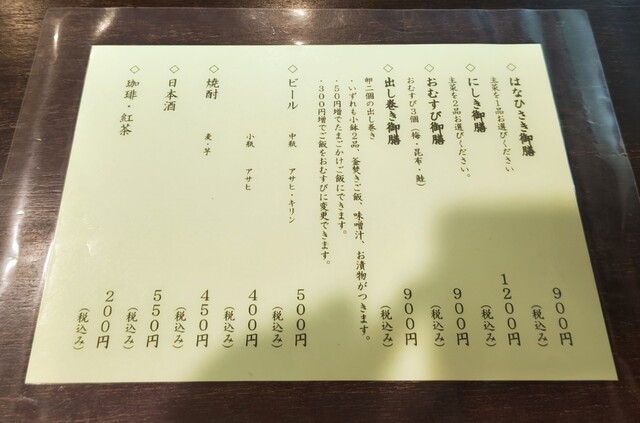 ◇はなひさき御膳 900円
主菜を1品お選びください (税込み)
◇にしき御膳 1200円
主菜を2品お選びください。 (税込み)
◇おむすび御膳 900円
おむすび3個(梅・昆布・鮭) (税込み)
◇出し巻き御膳 900円
卵二個の出し巻き (税込み)
・いずれも小鉢2品、釜焚きご飯、味噌汁、お漬物がつきます。
・50円増でたまごかけご飯にできます。
・300円増でご飯をおむすびに変更できます。
◇ビール 中瓶 アサヒ・キリン 500円
(税込み)
小瓶 アサヒ 400円
(税込み)
◇焼酎 麦・芋 450円
(税込み)
◇日本酒 550円
(税込み)
◇珈琲・紅茶 200円
(税込み)